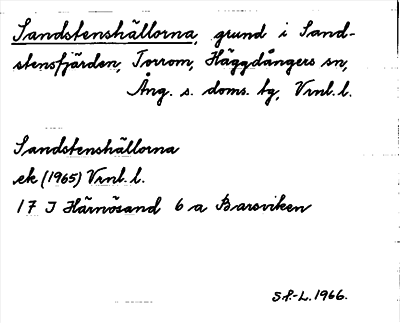 Sandstenshällorna, grund i Sand-
stensfjärden, Torrom, Häggdångers sn,
Ång. s. doms. tg, Vrnl. l.
Sandstenshällorna
ek (1965) Vrnl. l.
17 I Härnösand 6 a Barsviken
S.P.-L. 1966.